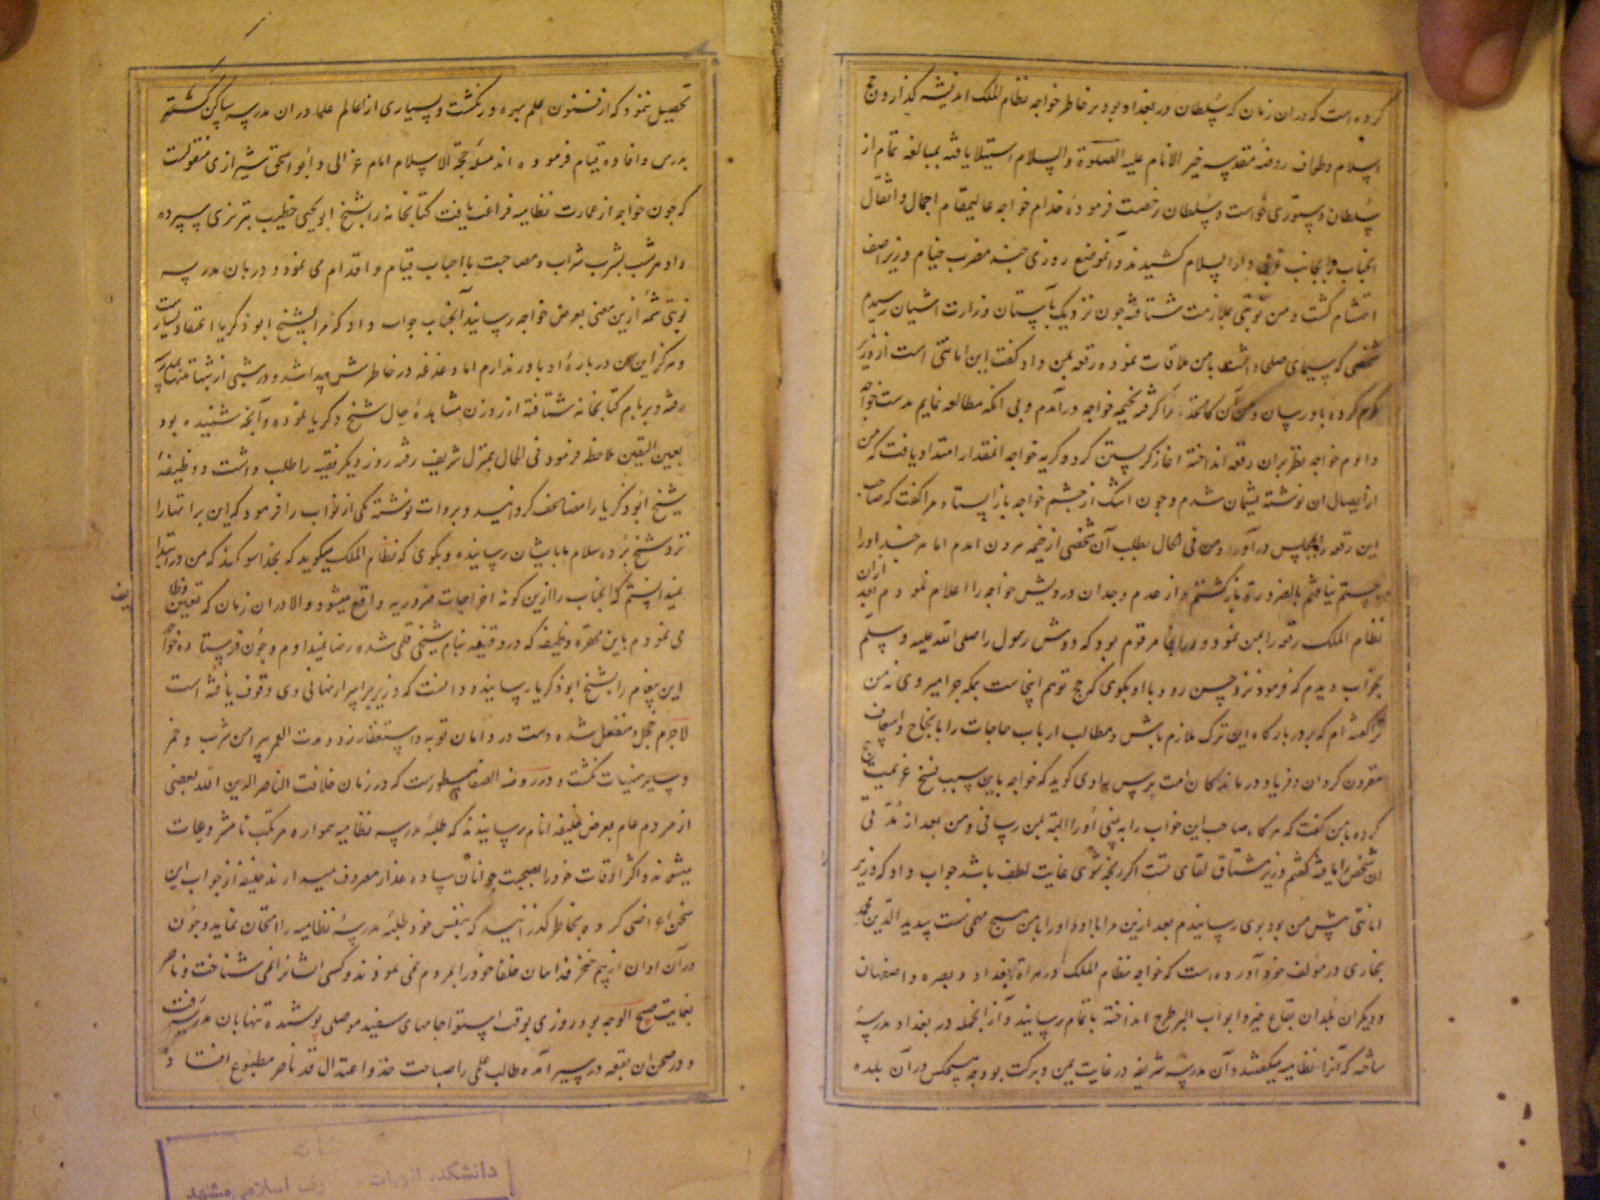 کرده است که دران زمان که سلطان در بغداد بود بر خاطر خواجه نظام الملک اندیشه گذاردن حج
اسلام و طواف روضه مقدسه خیر الانام علیه الصلوة والسلام استیلا یافته بمبالغه تمام از
سلطان دستوری خواست و سلطان رخصت فرموده خدام خواجه عالیمقام احمال و اثقال
انجناب بجانب غربی دار السلام کشیدند و آنموضع روزی چند مضرب خیام وزیر آصف
احتشام گشت و من نوبتی بملازمت شتافته چون نزدیک بآستان وزارت آشیان رسیدم
شخصی که سیمای صلحا داشت با من ملاقات نموده رقعه بمن داد و گفت این امانتی است از وزیر
کرم کرده باو رسان و من آن کاغذ را گرفته بخیمه خواجه درآمدم و بی انکه مطالعه نمایم بدست خواجه
دادم خواجه نظر بران رقعه انداخته اغاز گریستن کرد و گریه خواجه انمقدار امتداد یافت که من
از ایصال ان نوشته پشیمان شدم و چون اشک از چشم خواجه باز ایستاد مرا گفت که صاحب
این رقعه را بمجلس درآور و من فی الحال بطلب آن شخص از خیمه بیرون امدم اما هر چند او را
جستم نیافتم بالضروره بازگشتم و از عدم وجدان درویش خواجه را اعلام نمودم بعد ازان
نظام الملک رقعه را بمن نمود و در انجا مرقوم بود که دوش رسول را صلی الله علیه وسلم
بخواب دیدم که فرمود نزد حسن رو و با او بگوی که حج تو هم اینجاست بمکه چرا میروی نه من
ترا گفته ام که بر درگاه این ترک ملازم باش و مطالب ارباب حاجات را بانجاح و اسعاف
مقرون گردان و فریاد درماندگان امت برس راوی گوید که خواجه باین سبب فسخ عزیمت حج
کرده با من گفت که هرگاه صاحب این خواب را به بینی او را البته بمن رسانی و من بعد از مدتی
ان شخص را یافته گفتم وزیر مشتاق لقای تست اگر رنجه شوی غایت لطف باشد جواب داد که وزیر
امانتی پیش من بود بوی رسانیدم بعد ازین مرا با او و او را با من هیچ مهمی نیست سدید الدین محمد
بخاری در مؤلف خود آورده است که خواجه نظام الملک در هراة و بغداد و بصره و اصفهان
و دیگران بلدان بقاع خیر و ابواب البر طرح انداخته باتمام رسانید و از انجمله در بغداد مدرسهٔ
ساخته که آنرا نظامیه میگفتند و آن مدرسه شریفه در غایت یمن و برکت بود چه هیچکس در آن بلده
تحصیل ننمود که از فنون علم بهره ور نگشت و بسیاری از اعاظم علما در ان مدرسه ساکن گشته
بدرس و افاده قیام فرموده اند مثل حجة الاسلام امام غزالی و ابو اسحق شیرازی منقولست
که چون خواجه از عمارت نظامیه فراغت یافت کتابخانه را بشیخ ابو زکریا یحیی خطیب تبریزی سپرده
و او هر شب بشرب شراب و مصاحبت با احباب قیام و اقدام می نمود و دربان مدرسه
نوبتی شمهٔ ازین معنی بعرض خواجه رسانید آنجناب جواب داد که مرا بشیخ ابو زکریا اعتقاد بسیارست
و هرگز این سخن دربارهٔ او باور ندارم اما دغدغه در خاطرش پیدا شد و در شبی از شبها تنها بمدرسه
رفته و بر بام کتابخانه شتافته از روزن مشاهدهٔ حال شیخ زکریا نموده و آنچه شنیده بود
بعین الیقین ملاحظه فرمود فی الحال بمنزل شریف رفته روز دیگر فقیه را طلب داشت و وظیفهٔ
شیخ ابو زکریا را مضاعف گردانید و بروات نوشته یکی از نواب را فرمود که این براتها را
نزد شیخ برده سلام ما بایشان رسانیده و بگوی که نظام الملک میگوید که بخدا سوگند که من در ابتدا
نمیدانستم که انجناب را ازین گونه اخراجات ضروریه واقع میشود و الا دران زمان که تعیین وظا
یف
می نمودم باین محقره وظیفه که در وقفیه بنام شیخی قلمی شده رضا نمیدادم و چون فرستاده خواجه
این پیغام را بشیخ ابو زکریا رسانید و دانست که وزیر بر اسرار نهانی وی وقوف یافته است
لاجرم خجل و منفعل شده دست در دامان توبه و استغفار زد و مدت العمر پیرامن شرب و خمر
و سایر منهیات نگشت و در روضه الصفا مسطورست که در زمان خلافت الناصر الدین الله بعضی
از مردم عام بعرض خلیفه انام رسانیدند که طلبهٔ مدرسه نظامیه همواره مرتکب نامشروعات
میشوند و اکثر اوقات خود را بصحبت جوانان ساده عذار مصروف میدارند خلیفه از جواب این
سخن اعراض کرده بخاطر گذرانید که بنفس خود طلبهٔ مدرسهٔ نظامیه را امتحان نماید و چون
در آن اوان از بیم خنجر فدائیان خلفا خود را بمردم نمی نمودند و کسی ایشانرا نمی شناخت و ناصر
بغایت صبیح الوجه بود روزی بوقت استوا جامهای سفید موصلی پوشیده تنها بان مدرسه رفت
و در صحن ان بقعه در سیر آمده طالب علمی را صباحت خد و اعتدال قد ناصر مطبوع افتاد
دانشکده الهیات
معارف اسلامی مشهد